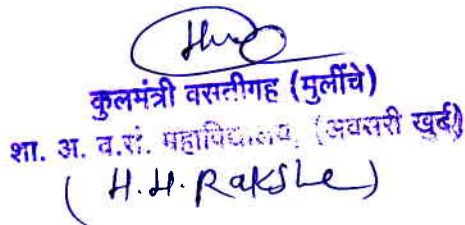 कुलमंत्री वसतीगृह (मुलींचे)
शा. अ. व.सं. महाविद्यालय, (अवसरी खुर्द)
( H.H. Rakshe )